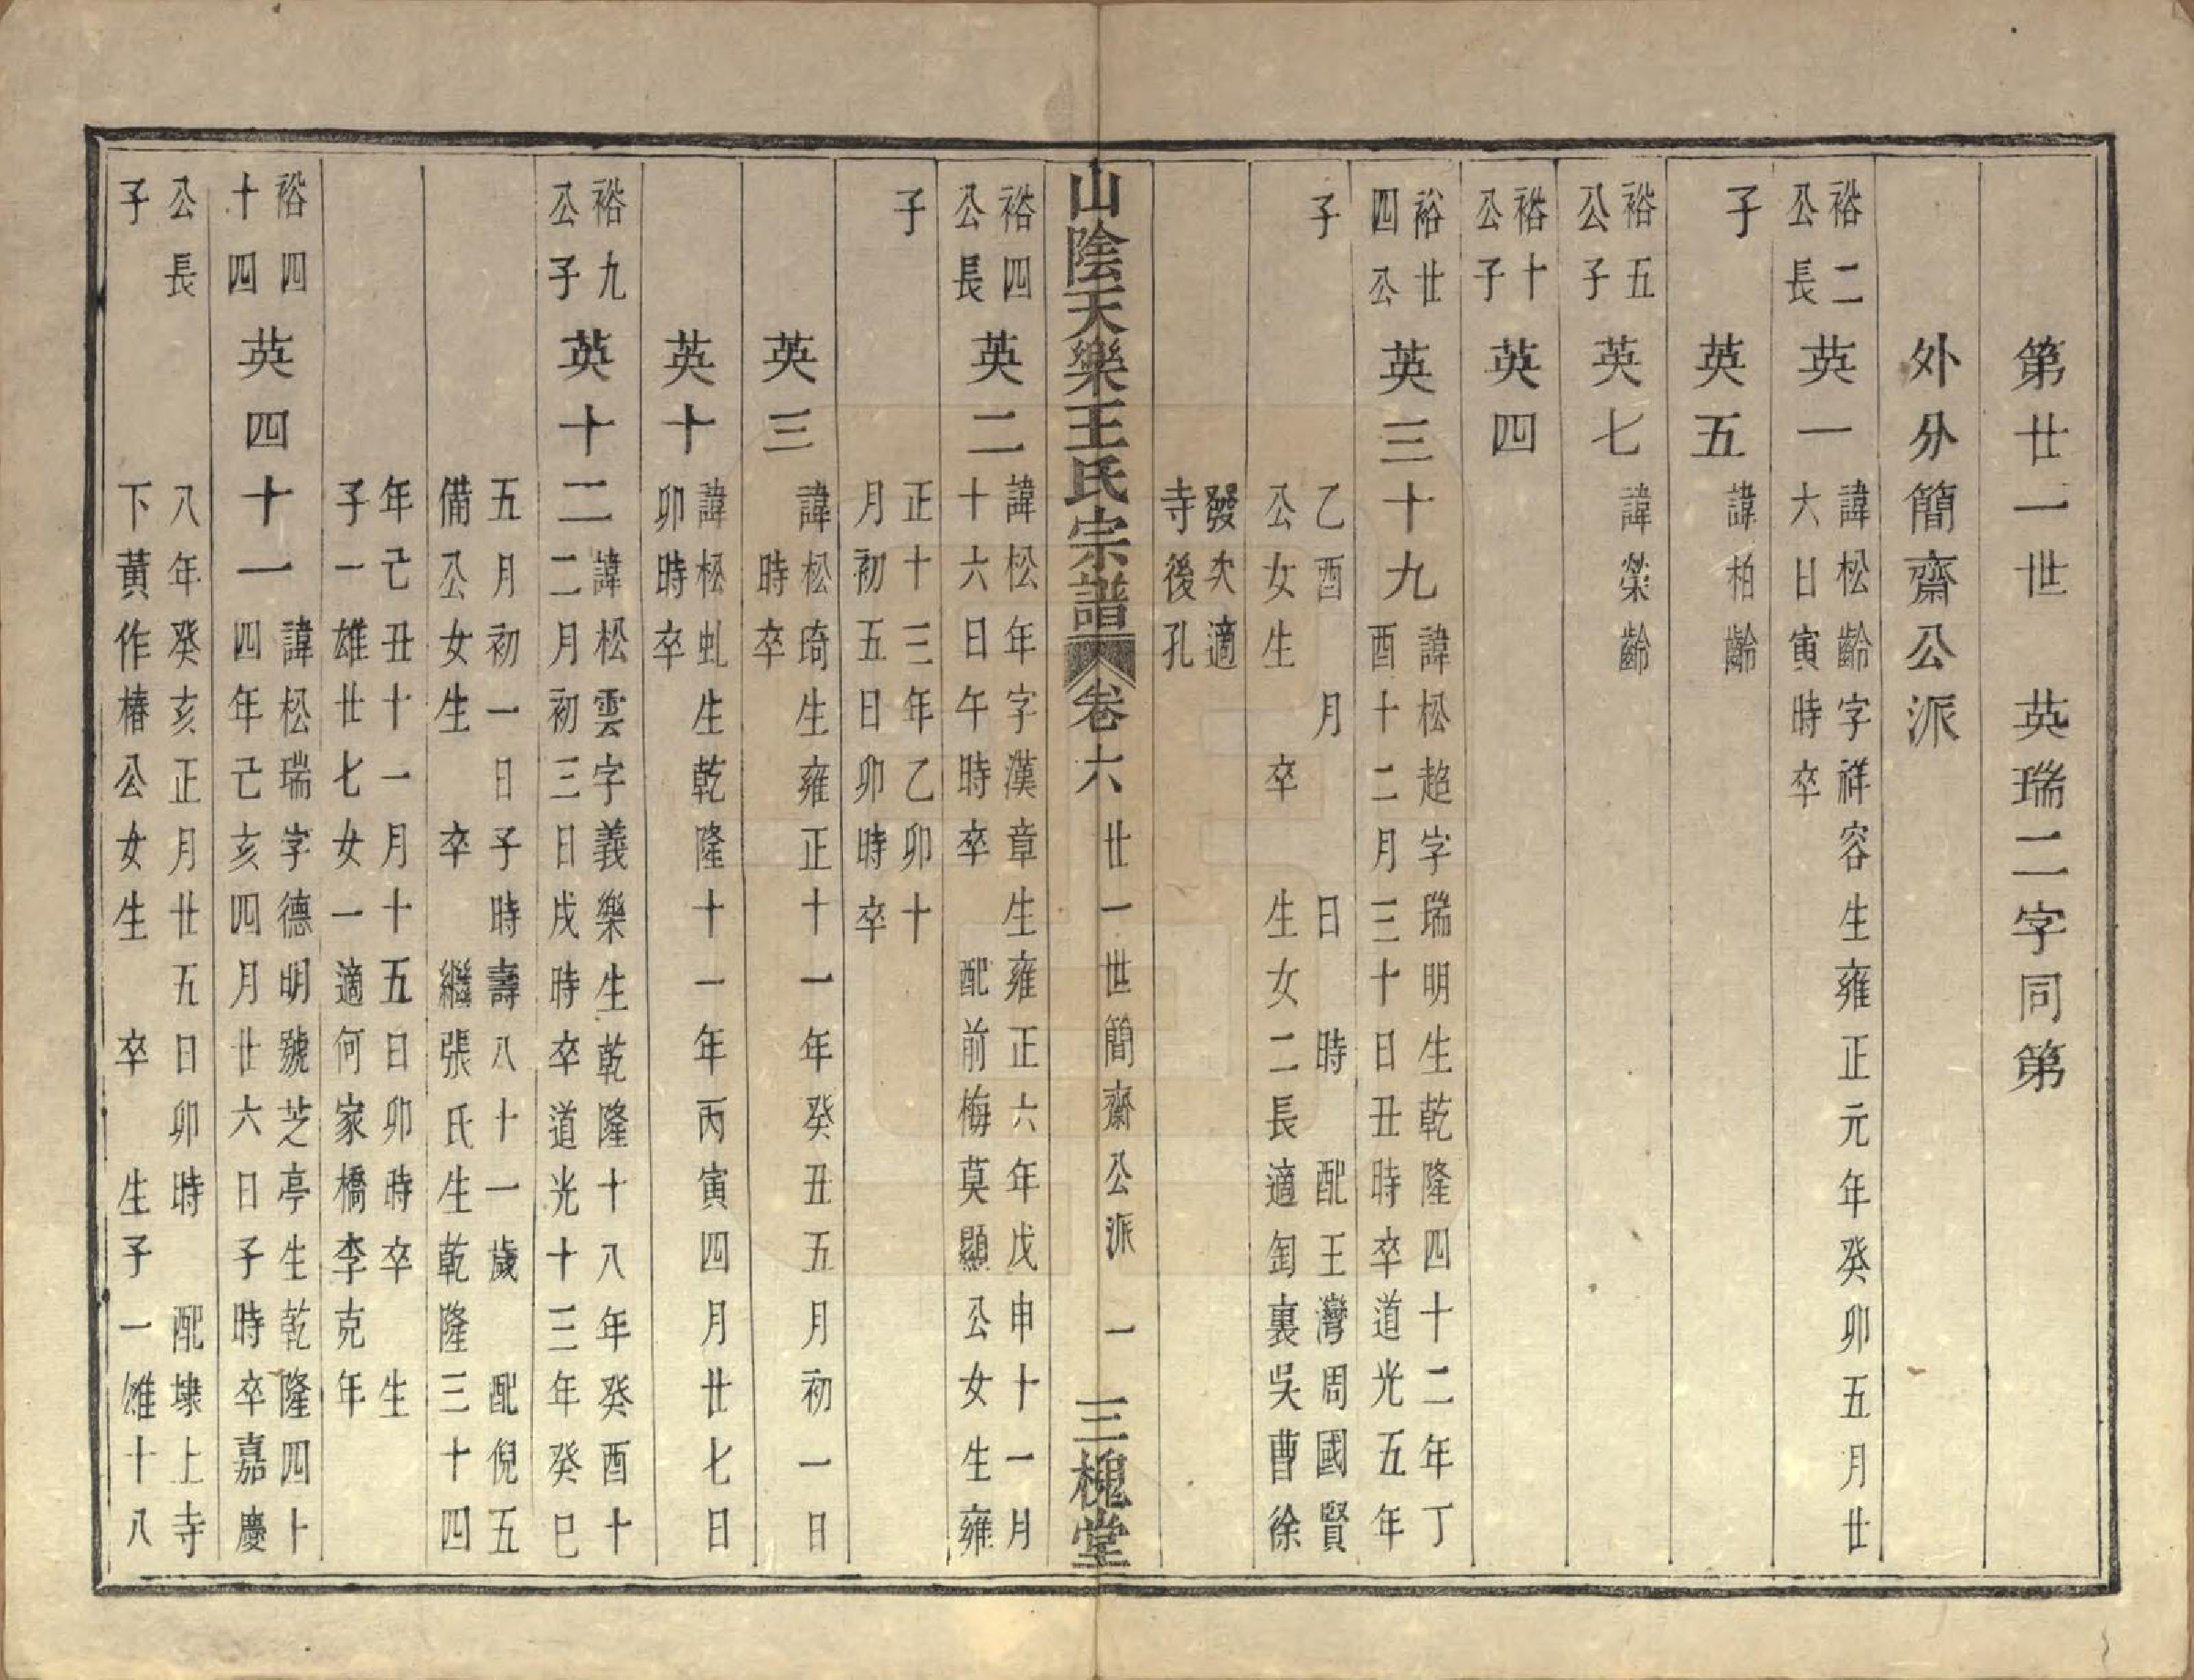 第廿一世　英瑞二字同第
外分簡齋公派
裕二
公長
英一
諱松齡字祥容生雍正元年癸卯五月廿
六日寅時卒
子
英五
諱柏齡
裕五
公子
英七
諱榮齡
裕十
公子
英四
裕廿
四公
英三十九
諱松超字瑞明生乾隆四十二年丁
酉十二月三十日丑時卒道光五年
子
乙酉　月　　日　時　配王灣周國賢
公女生　卒　生女二長適匋裏吳曹徐
發次適
寺後孔
山陰天樂王氏宗譜　卷六　廿一世簡齋公派　一　三槐堂
裕四
公長
英二
諱松年字漢章生雍正六年戊申十一月
十六日午時卒　配前梅莫顯公女生雍
子
正十三年乙卯十
月初五日卯時卒
英三
諱松琦生雍正十一年癸丑五月初一日
時卒
英十
諱松虬生乾隆十一年丙寅四月廿七日
卯時卒
裕九
公子
英十二
諱松雲字義樂生乾隆十八年癸酉十
二月初三日戌時卒道光十三年癸巳
五月初一日子時壽八十一歲　配倪五
備公女生　卒　繼張氏生乾隆三十四
年己丑十一月十五日卯時卒　生
子一雄廿七女一適何家橋李克年
裕四
十四
英四十一
諱松瑞字德明號芝亭生乾隆四十
四年己亥四月廿六日子時卒嘉慶
公長
子
八年癸亥正月廿五日卯時　配埭上寺
下黃作椿公女生　卒　生子一雄十八